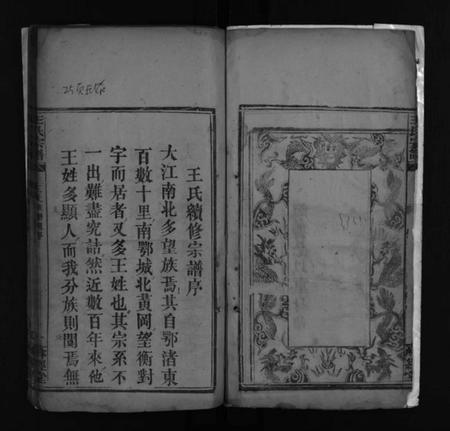 王氏續修宗譜序
大江南北多望族焉其自鄂渚東
百數十里南鄂城北黃岡望衡對
宇而居者又多王姓也其宗系不
一出難盡究詰然近數百年來他
王姓多顯人而我分族則闃焉無